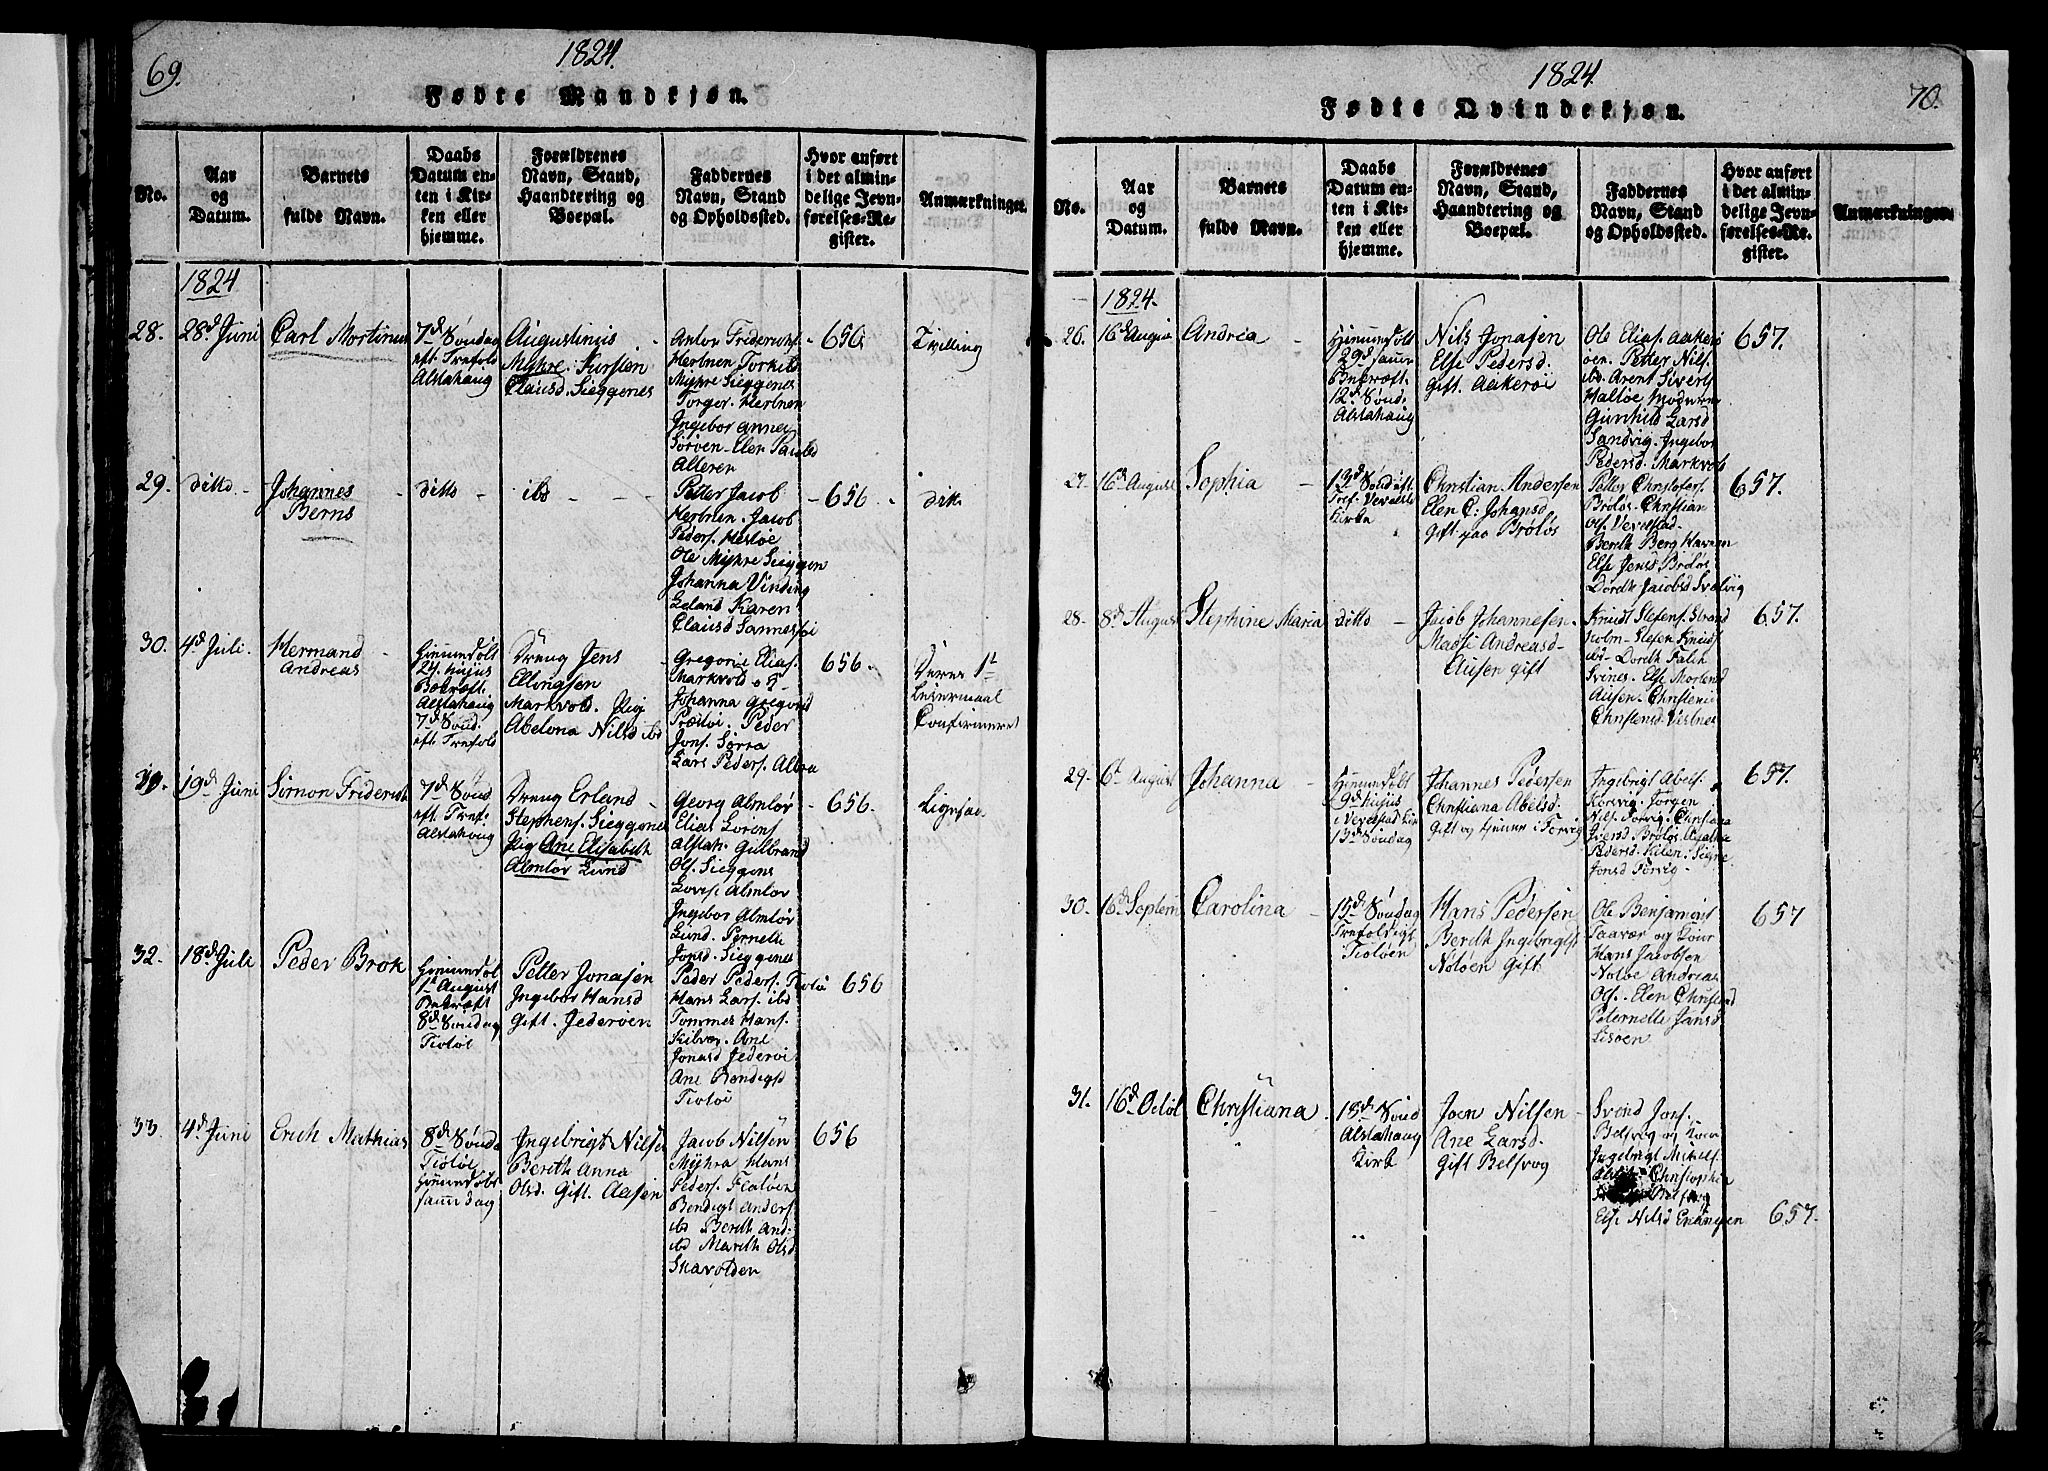 69.
1824.
Fødte Mandkjøn.
No.
Aar
og
Datum.
Barnets
fulde Navn.
Daabs
Datum en-
ten i Kir-
ken eller
hjemme.
Forældrenes
Navn, Stand,
Haandtering og
Boepæl.
Faddernes
Navn, Stand
og Opholdssted.
Hvor anført
i det almin-
delige Jevn-
førelses-Re-
gister.
Anmærkninger.
1824
28.
28d Juni
Carl Mortinus
7d Søndag
eft. Trefold
Alstahaug
Augustinus
Myhre. Kirsten
Clausd. Sieggenes
Anton Friderichs.
Herbnen Torkild
Myhre Sieggenes
Torger Herbnen
Ingebor Anney
Sørøen - Elen Paulsd
Alteren
656
Tvilling
29.
ditto
Johannes
Berns
ditto
ibd
Petter Jacob
Herbnen. Jacob
Peders. Hestøe
Ole Myhre Sieggen
Johanna Vinding
Leland Karen
Clausd Sannesøi
656
dito
30.
4d Juli
Hermand
Andreas
Hiemmedøbt
24. hujus
Bekræft.
Alstahaug
7d Sønd.
eft. Trefold
Dreng Jens
Ellingsen
Markvold. Pig
Abelona Nilsd ibd
Gregorie Elias.
Markvold
Johanna Gregorsd
Prestøi. Peder
Jons. Sørra
Lars Peders. Albra
656
Deres 1t
Leiermaal
Confirmeret
31.
19d Juni
Simon Friderich
7d Sønd
eft. Tref.
Alstahaug
Dreng Erland
Stephens. Sieggenes
Pig Ane Elisabeth
Almlov Lund
Georg Almlov
Elias Lorens
Alstah. Gulbrand
Ols. Sieggens
Lovise Almlov
Ingebor Almlov
Lund. Pernelle
Jonsd. Sieggenes
656.
32.
18d Juli
Peder Brok
Hiemmedøbt
1t August
Bekræft
8d Søndag
Tiøtøi
Petter Jonasen
Ingebor Hansd
Gift. Jederøen
Peder Peders. Tiøtøi
Hans Lars. ibd
Tommes Hans.
Kilvær. Ane
Jonasd Jederøi
Ane Bendigtsd
Tiøtøi
656
33.
4d Juni
Erich Mathias
8d Sønd
Tiøtøi
Hiemmedøbt
samme dag
Ingebrigt Nilsen
Berith Anna
Olsd. Gift. Aasen
Jacob Nilsen
Myhra Hans
Peders. Flatøen
Bendigt Anders.
ibd Berith And.
ibd Marith Olsd
Skavolden
656
1824.
70.
Fødte Qvindekjøn.
No.
Aar
og
Datum.
Barnets
fulde Navn.
Daabs
Datum en-
ten i Kir-
ken eller
hjemme.
Forældrenes
Navn, Stand,
Haandtering og
Boepæl.
Faddernes
Navn, Stand
og Opholdssted.
Hvor anført
i det almin-
delige Jevn-
førelses-Re-
gister.
Anmærkninger.
1824.
26.
16d August
Andrea
Hiemmedøbt
29d samme
Bekræft.
12d Sønd.
Alstahaug
Nils Jonasen
Else Pedersd.
Gift. Aakerøi
Ole Elias. Aakerø
øen. Petter Nils.
ibd. Arent Sivert
Haltøe Moderen
Gunhild Larsd
Sandvig. Ingebor
Pedersd. Markvold
657.
27.
16d August
Sophia
13d Sønd eft
Tref. Vevelstd
Kirke
Christian Andersen
Elen C: Johansd
Gift paa Brøløs
Petter Christofers.
Brøløs. Christian
Ols. Vevelstad-
Berith Berg Havnen
Else Jensd Brøløs
Dordh Jacobsd Svalvig
657.
28.
8d August
Stephine Maria
ditto
Jacob Johannesen
Madsi Andreasd-
Ausen gift
Knudt Stefens. Strand
holm. Stefen Knuds
ibd- Dordh Falch
Svines. Else Mortensd
Ausen. Christense
Christensd. Vistnes
657.
29.
6t August
Johanna
Hiemmedøbt
29d hujus
i Vevelstad Kirk
13d Søndag
Johannes Pedersen
Christiana Abelsd.
Gift og hjemme i Forvig
Ingebrigt Abels.
Forvig. Jørgen
Nils. Forvig. Christiana
Iversd. Brøløs
Pedersd. Kilen. Signe
Jonsd Forvig.
657.
30.
16d Septem
Carolina
15d Søndag
Trefoldigt
Tiøtøen
Hans Pedersen
Berith Ingebrigtsd
Notøen Gift
Ole Benjamins
Taavær og Kone
Hans Jacobsen
Notøe Andreas
Ols. Elen Christensd
Peternelle Jansd
Lisøen
657
31.
16d Octob
Christiana
18d Sønd
Alstahaug
Kirk
Joen Nilsen
Ane Larsd.
Gift Belsvog
Svend Jons.
Belsvog og Kone
Ingebrigt Mikels.
Christophia
Belsvog
Else Nilsd Enangen
657.